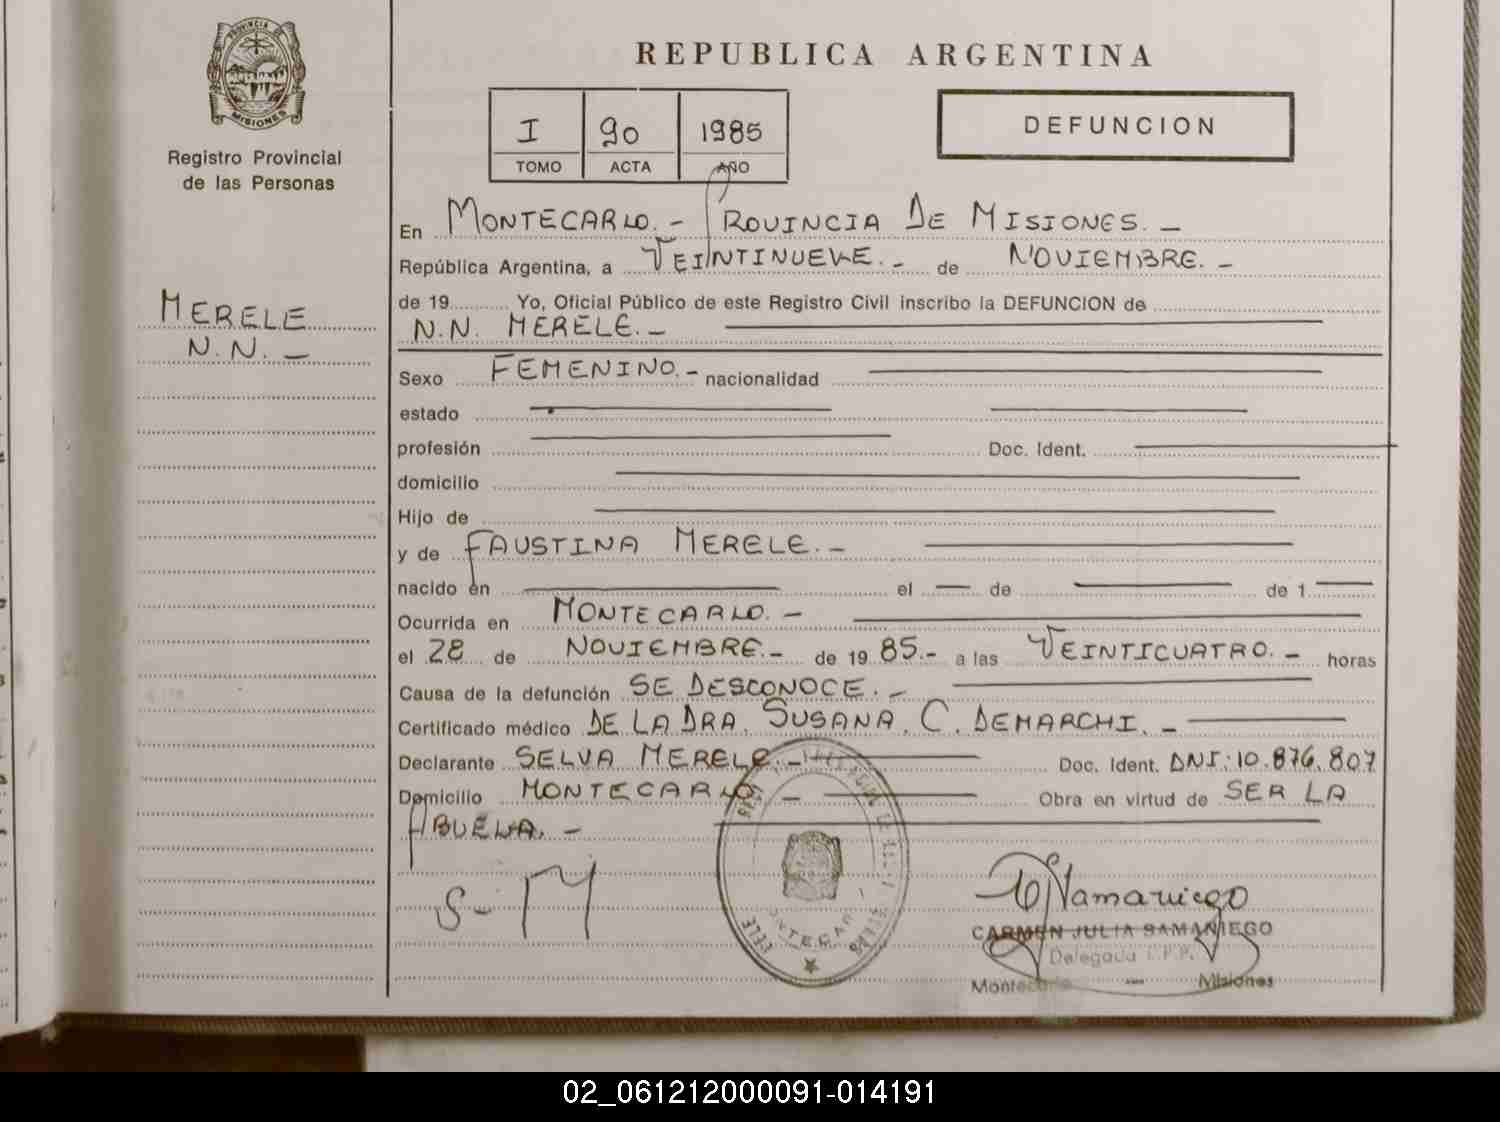 PROVINCIA DE
MISIONES
Registro Provincial
de las Personas
MERELE
N.N. —
REPUBLICA ARGENTINA
I 90 1985
TOMO ACTA AÑO
DEFUNCION
En MONTECARLO.- PROVINCIA DE MISIONES. —
República Argentina, a VEINTINUEVE.- de NOVIEMBRE. -
de 19 Yo, Oficial Público de este Registro Civil inscribo la DEFUNCION de
N.N. MERELE. —
Sexo FEMENINO.- nacionalidad
estado
profesión Doc. Ident.
domicilio
Hijo de
y de FAUSTINA MERELE. -
nacido en el — de de 1
Ocurrida en MONTECARLO. -
el 28 de NOVIEMBRE.- de 19 85.- a las VEINTICUATRO. - horas
Causa de la defunción SE DESCONOCE. -
Certificado médico DE LA DRA. SUSANA. C. DEMARCHI. -
Declarante SELVA MERELE. - Doc. Ident. DNI: 10.876.807
Domicilio MONTECARLO - Obra en virtud de SER LA
ABUELA. -
S-M
CARMEN JULIA SAMANIEGO
Delegada
Montecarlo — Misiones
02_061212000091-014191